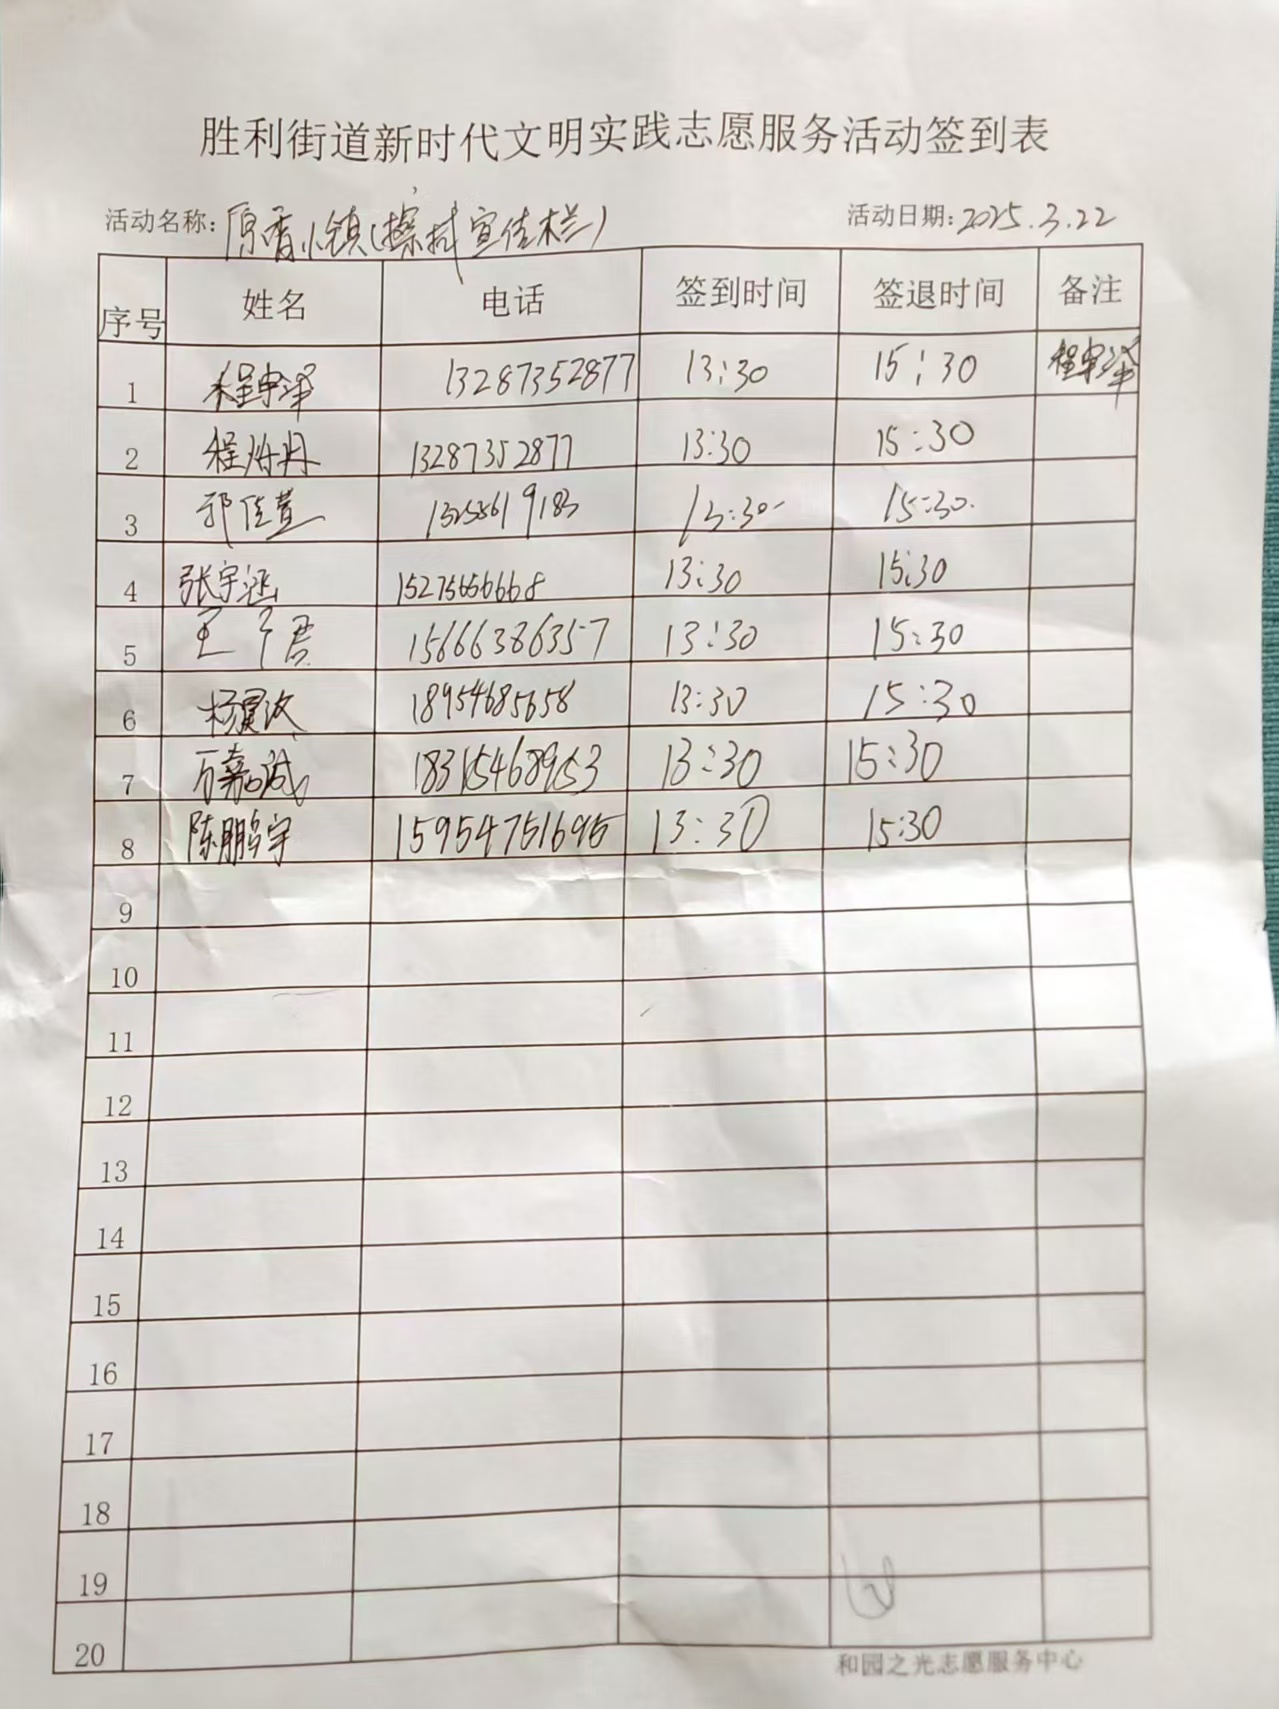 胜利街道新时代文明实践志愿服务活动签到表
活动名称: 原香小镇(擦拭宣传栏) 活动日期: 2025.3.22
序号 姓名 电话 签到时间 签退时间 备注
1 程宇泽 13287352877 13:30 15:30 程宇泽
2 程 13287352877 13:30 15:30
3 郭佳萱 13:30 15:30
4 张宇涵 15275656668 13:30 15:30
5 王子君 15666386357 13:30 15:30
6 杨 18954685658 13:30 15:30
7 万嘉诚 18315468953 13:30 15:30
8 陈鹏宇 15954751695 13:30 15:30
9
10
11
12
13
14
15
16
17
18
19
20
和园之光志愿服务中心